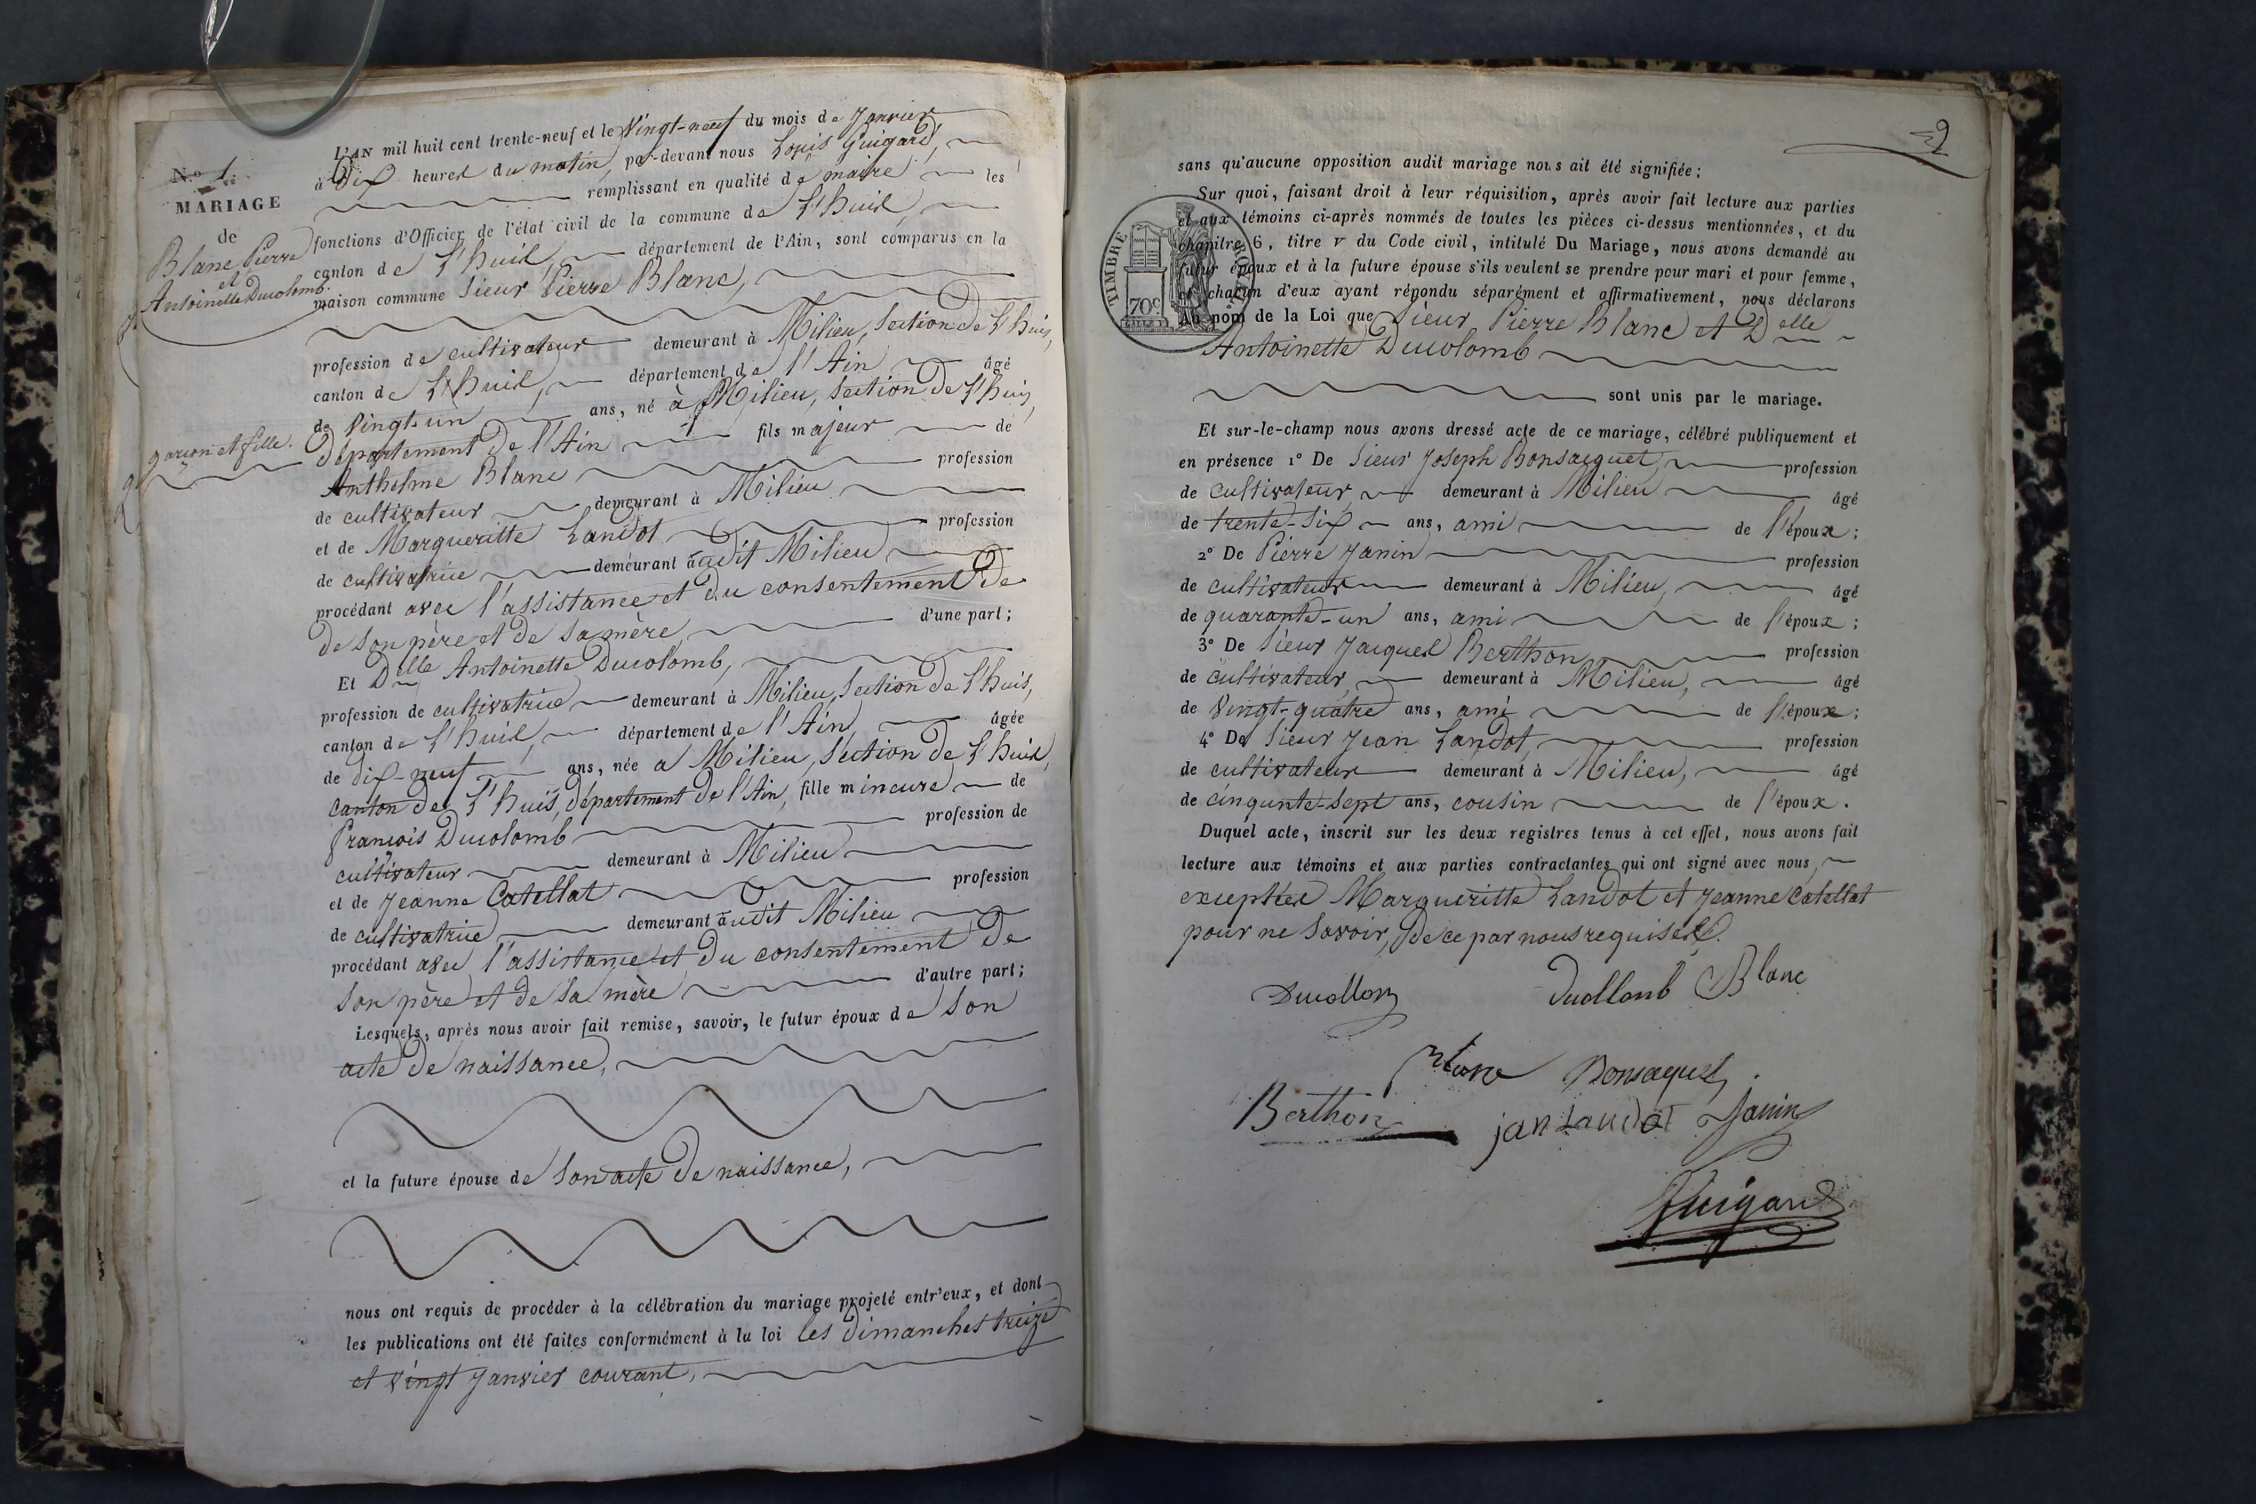 N.o 1.
MARIAGE
de
Blanc Pierre
et
Antoinette Ducolomb.
garçon et fille.
L'AN mil huit cent trente-neuf et le Vingt-neuf du mois de Janvier
à dix heures du matin, par-devant nous Louis Guigard,
remplissant en qualité de maire les
fonctions d'Officier de l'état civil de la commune de L'huis,
canton de L'huis, département de l'Ain, sont comparus en la
maison commune Sieur Pierre Blanc,
profession de cultivateur demeurant à Milieu, Section de L'huis,
canton de L'huis, département de l'Ain âgé
de Vingt-un ans, né à Milieu, Section de L'huis,
département de l'Ain fils majeur de
Anthelme Blanc profession
de cultivateur demeurant à Milieu
et de Margueritte Landot profession
de cultivatrice demeurant audit Milieu
procédant avec l'assistance et du consentement de
de son père et de sa mère d'une part;
Et Delle Antoinette Ducolomb,
profession de cultivatrice demeurant à Milieu, Section de L'huis,
canton de L'huis, département de l'Ain, âgée
de dix-neuf ans, née à Milieu, Section de L'huis,
canton de L'huis, département de l'Ain, fille mineure de
François Ducolomb profession de
cultivateur demeurant à Milieu
et de Jeanne Catellat profession
de cultivatrice demeurant audit Milieu
procédant avec l'assistance et du consentement de
son père et de sa mère d'autre part;
Lesquels, après nous avoir fait remise, savoir, le futur époux de son
acte de naissance,
et la future épouse de son acte de naissance,
nous ont requis de procéder à la célébration du mariage projeté entr'eux, et dont
les publications ont été faites conformément à la loi les dimanches treize
et vingt Janvier courant,
2
sans qu'aucune opposition audit mariage nous ait été signifiée;
Sur quoi, faisant droit à leur réquisition, après avoir fait lecture aux parties
et aux témoins ci-après nommés de toutes les pièces ci-dessus mentionnées, et du
chapitre 6, titre v du Code civil, intitulé Du Mariage, nous avons demandé au
futur époux et à la future épouse s'ils veulent se prendre pour mari et pour femme,
et chacun d'eux ayant répondu séparément et affirmativement, nous déclarons
Au nom de la Loi que Sieur Pierre Blanc et Delle
Antoinette Ducolomb
sont unis par le mariage.
TIMBRE ROYAL
70c
Et sur-le-champ nous avons dressé acte de ce mariage, célébré publiquement et
en présence 1° De Sieur Joseph Bonsacquet, profession
de cultivateur demeurant à Milieu âgé
de trente-six ans, ami de l'époux;
2° De Pierre Janin profession
de cultivateur demeurant à Milieu, âgé
de quarante-un ans, ami de l'époux;
3° De Sieur Jacques Berthon, profession
de cultivateur, demeurant à Milieu, âgé
de Vingt-quatre ans, ami de l'époux;
4° De Sieur Jean Landot, profession
de cultivateur demeurant à Milieu, âgé
de cinqunte-sept ans, cousin de l'époux.
Duquel acte, inscrit sur les deux registres tenus à cet effet, nous avons fait
lecture aux témoins et aux parties contractantes qui ont signé avec nous,
exceptées Margueritte Landot et Jeanne Catellat
pour ne savoir, de ce par nous requises.
Ducollon Ducllomb Blanc
Blanc Bonsaquet
Berthon jan Landot Janin
Guigard